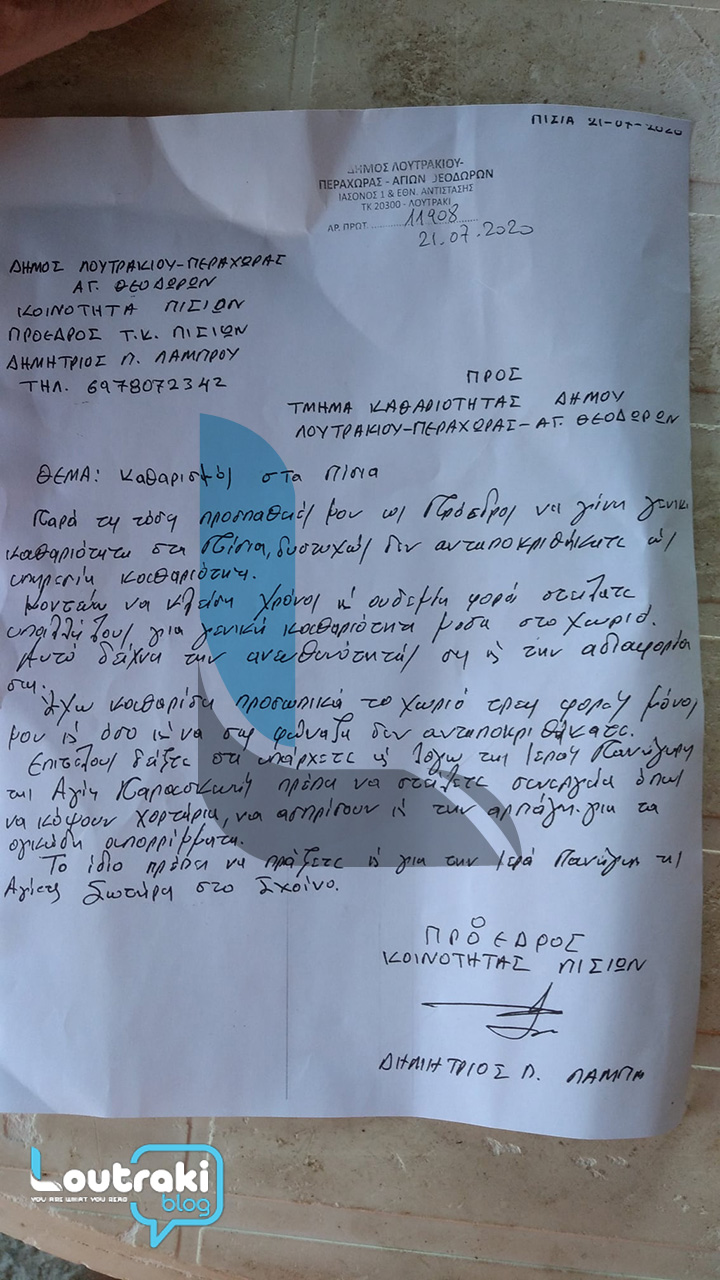 ΠΙΣΙΑ 21-07-2020
ΔΗΜΟΣ ΛΟΥΤΡΑΚΙΟΥ-
ΠΕΡΑΧΩΡΑΣ - ΑΓΙΩΝ ΘΕΟΔΩΡΩΝ
ΙΑΣΟΝΟΣ 1 & ΕΘΝ. ΑΝΤΙΣΤΑΣΗΣ
ΤΚ 20300 - ΛΟΥΤΡΑΚΙ
ΑΡ. ΠΡΩΤ. 11908
21.07.2020
ΔΗΜΟΣ ΛΟΥΤΡΑΚΙΟΥ-ΠΕΡΑΧΩΡΑΣ
ΑΓ. ΘΕΟΔΩΡΩΝ
ΚΟΙΝΟΤΗΤΑ ΠΙΣΙΩΝ
ΠΡΟΕΔΡΟΣ Τ.Κ. ΠΙΣΙΩΝ
ΔΗΜΗΤΡΙΟΣ Π. ΛΑΜΠΡΟΥ
ΤΗΛ. 6978072342
ΠΡΟΣ
ΤΜΗΜΑ ΚΑΘΑΡΙΟΤΗΤΑΣ ΔΗΜΟΥ
ΛΟΥΤΡΑΚΙΟΥ-ΠΕΡΑΧΩΡΑΣ-ΑΓ. ΘΕΟΔΩΡΩΝ
ΘΕΜΑ: Καθαρισμός στα Πίσια
Παρά τη τόση προσπαθειές μου ως Πρόεδρος να γίνη γενικι
καθαριότητα στα Πίσια, δυστυχώς δεν ανταποκριθήκατε ώς
υπηρεσία καθαριότητη.
Κοντεύω να κλείση χρόνος κ ουδεμία φορά στείλατε
υπαλλήλους για γενική καθαριότητα μέσα στο χωριό.
Αυτό δείχνει την ανευθυνότητάς σας κ την αδιαφορία
σας.
Έχω καθαρίση προσωπικά το χωριό τρεις φορές μόνος
μου κ όσο κ να σας φώναξα δεν ανταποκριθήκατε.
Επιτέλους δείξτε οτι υπάρχετε κ λόγω της Ιεράς Πανήγυρη
της Αγίας Παρασκευής πρέπει να στείλετε συνεργεία όπως
να κόψουν χορτάρια, να ασπρίσουν κ την αρπάγη για τα
ογκώδη απορρίμματα.
Το ίδιο πρέπει να πράξετε κ για την Ιερά Πανήγυρη της
Αγίας Σωτήρα στο Σχοίνο.
Ο
ΠΡΟΕΔΡΟΣ
ΚΟΙΝΟΤΗΤΑΣ ΠΙΣΙΩΝ
ΔΗΜΗΤΡΙΟΣ Π.
Loutraki
YOU ARE WHAT YOU READ
blog